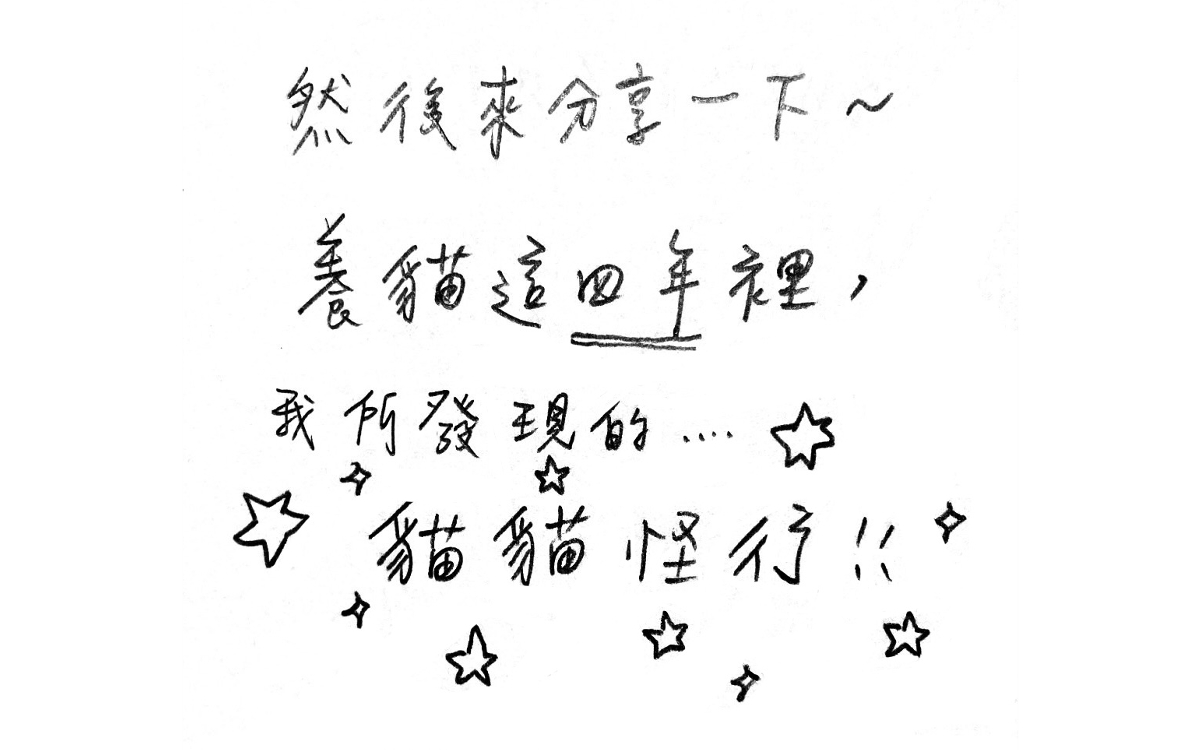 然後來分享一下～
養貓這四年裡，
我所發現的....
貓貓怪行!!